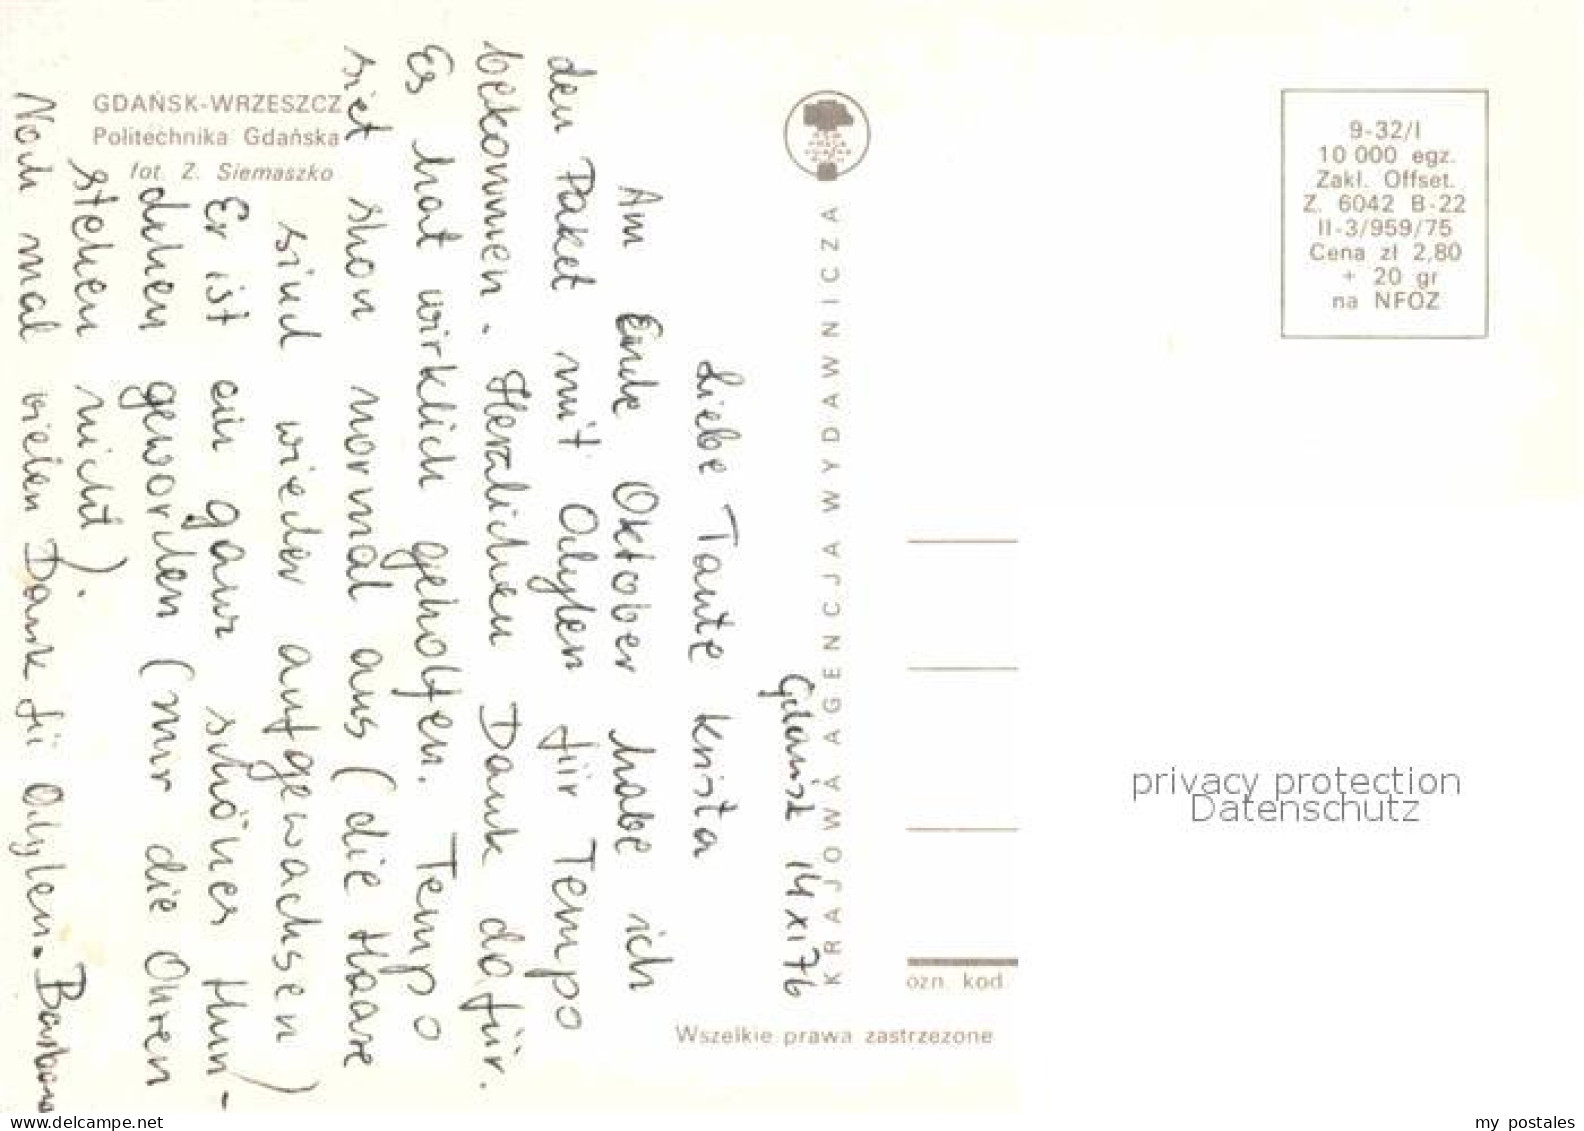 GDAŃSK-WRZESZCZ
Politechnika Gdańska
fot. Z. Siemaszko
Gdańsk 14 XI 76
Liebe Tante Krista
Am Ende Oktober habe ich
den Paket mit Odylen für Tempo
bekommen. Herzlichen Dank dafür.
Es hat wirklich geholfen. Tempo
siet shon normal aus (die Haare
sind wieder aufgewachsen)
Er ist ein ganz schönes Hun-
dchen geworden (nur die Ohren
stehen nicht).
Noch mal vielen Dank fü Odylen. Barbara
KRAJOWA AGENCJA WYDAWNICZA
9-32/I
10 000 egz.
Zakl. Offset.
Z. 6042 B-22
II-3/959/75
Cena zł 2,80
+ 20 gr
na NFOZ
ozn. kod.
Wszelkie prawa zastrzezone
privacy protection
Datenschutz
www.delcampe.net
my postales